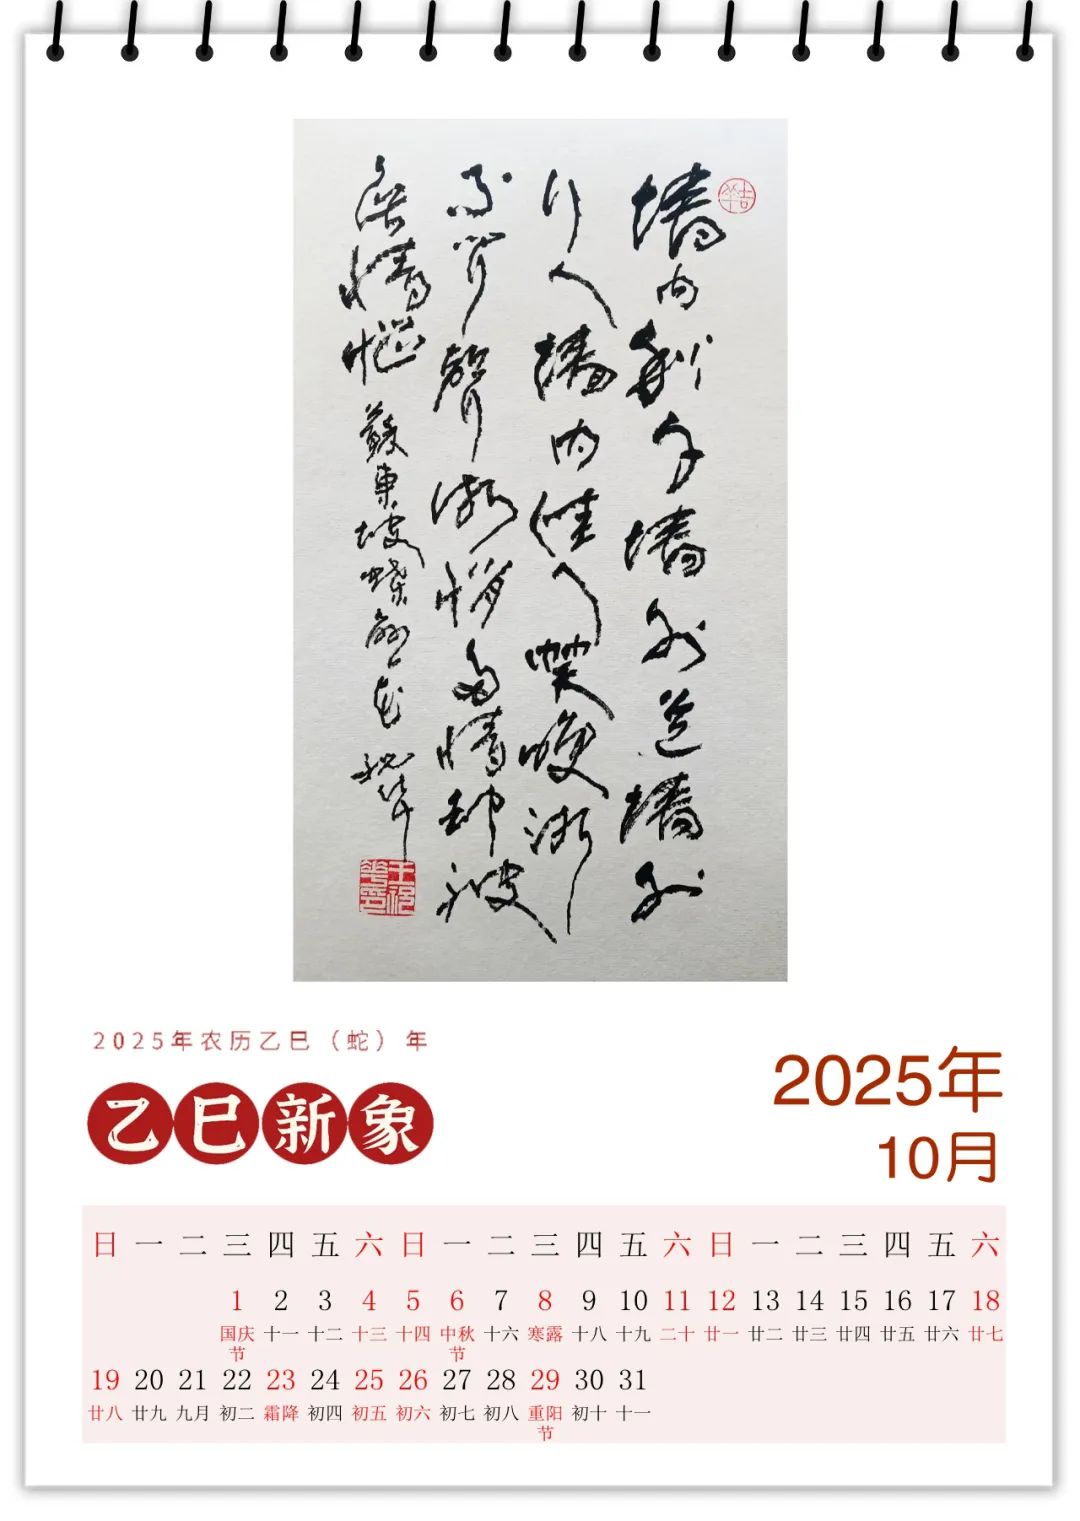 墙内秋千墙外道墙外
行人墙内佳人笑渐
不闻聲渐悄多情却被
無情恼 蘇東坡蝶恋花
2025年农历乙巳（蛇）年
乙巳新象
2025年
10月
日 一 二 三 四 五 六 日 一 二 三 四 五 六 日 一 二 三 四 五 六
1 2 3 4 5 6 7 8 9 10 11 12 13 14 15 16 17 18
国庆节 十一 十二 十三 十四 中秋节 十六 寒露 十八 十九 二十 廿一 廿二 廿三 廿四 廿五 廿六 廿七
19 20 21 22 23 24 25 26 27 28 29 30 31
廿八 廿九 九月 初二 霜降 初四 初五 初六 初七 初八 重阳节 初十 十一